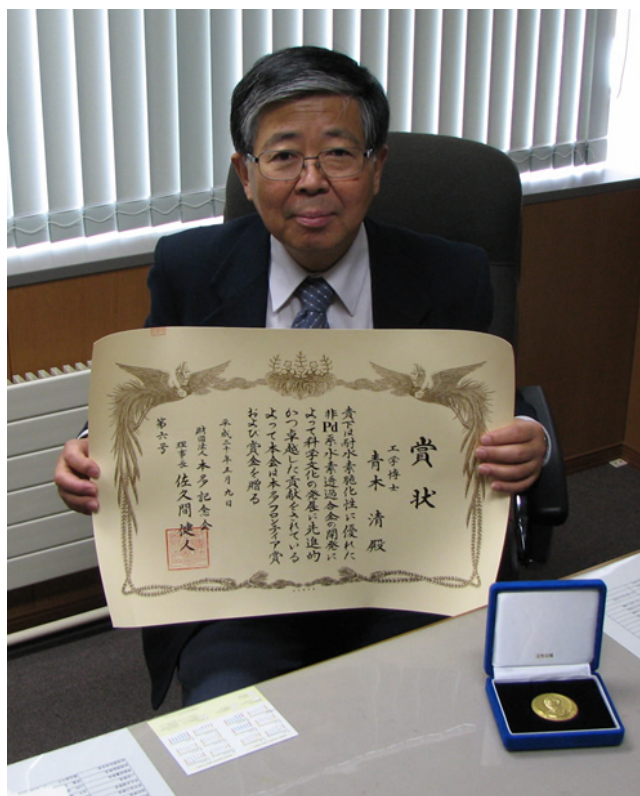 賞状
工学博士
青木 清 殿
貴下は耐水素脆化性に優れた
非Pd系水素透過合金の開発に
よって科学文化の発展に先進的
かつ卓越した貢献をされている
よって本会は本多フロンティア賞
および賞金を贈る
平成二十年五月九日
財団法人 本多記念会
理事長 佐久間健人
第六号